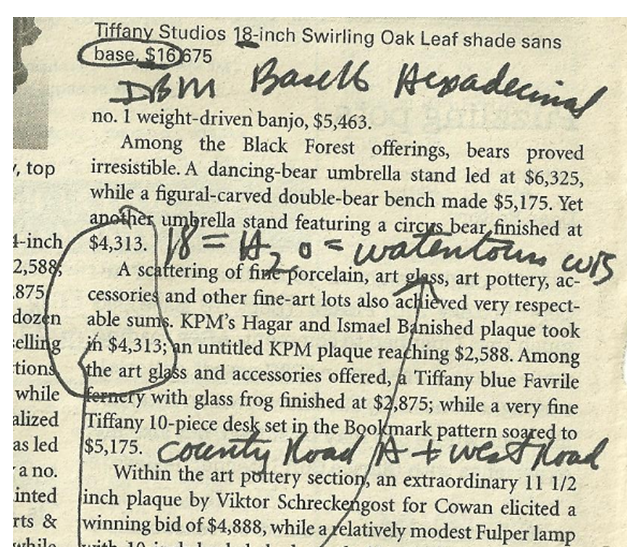 Tiffany Studios 18-inch Swirling Oak Leaf shade sans
base, $16,675
IBM Base16 Hexadecimal
no. 1 weight-driven banjo, $5,463.
Among the Black Forest offerings, bears proved
irresistible. A dancing-bear umbrella stand led at $6,325,
while a figural-carved double-bear bench made $5,175. Yet
another umbrella stand featuring a circus bear finished at
$4,313.
18 = H2O = watertown wis
A scattering of fine porcelain, art glass, art pottery, ac-
cessories and other fine-art lots also achieved very respect-
able sums. KPM's Hagar and Ismael Banished plaque took
in $4,313; an untitled KPM plaque reaching $2,588. Among
the art glass and accessories offered, a Tiffany blue Favrile
fernery with glass frog finished at $2,875; while a very fine
Tiffany 10-piece desk set in the Bookmark pattern soared to
$5,175.
county Road A + west Road
Within the art pottery section, an extraordinary 11 1/2
inch plaque by Viktor Schreckengost for Cowan elicited a
winning bid of $4,888, while a relatively modest Fulper lamp
, top
4-inch
2,588;
.875
dozen
elling
tions
while
alized
as led
a no.
inted
rts &
while